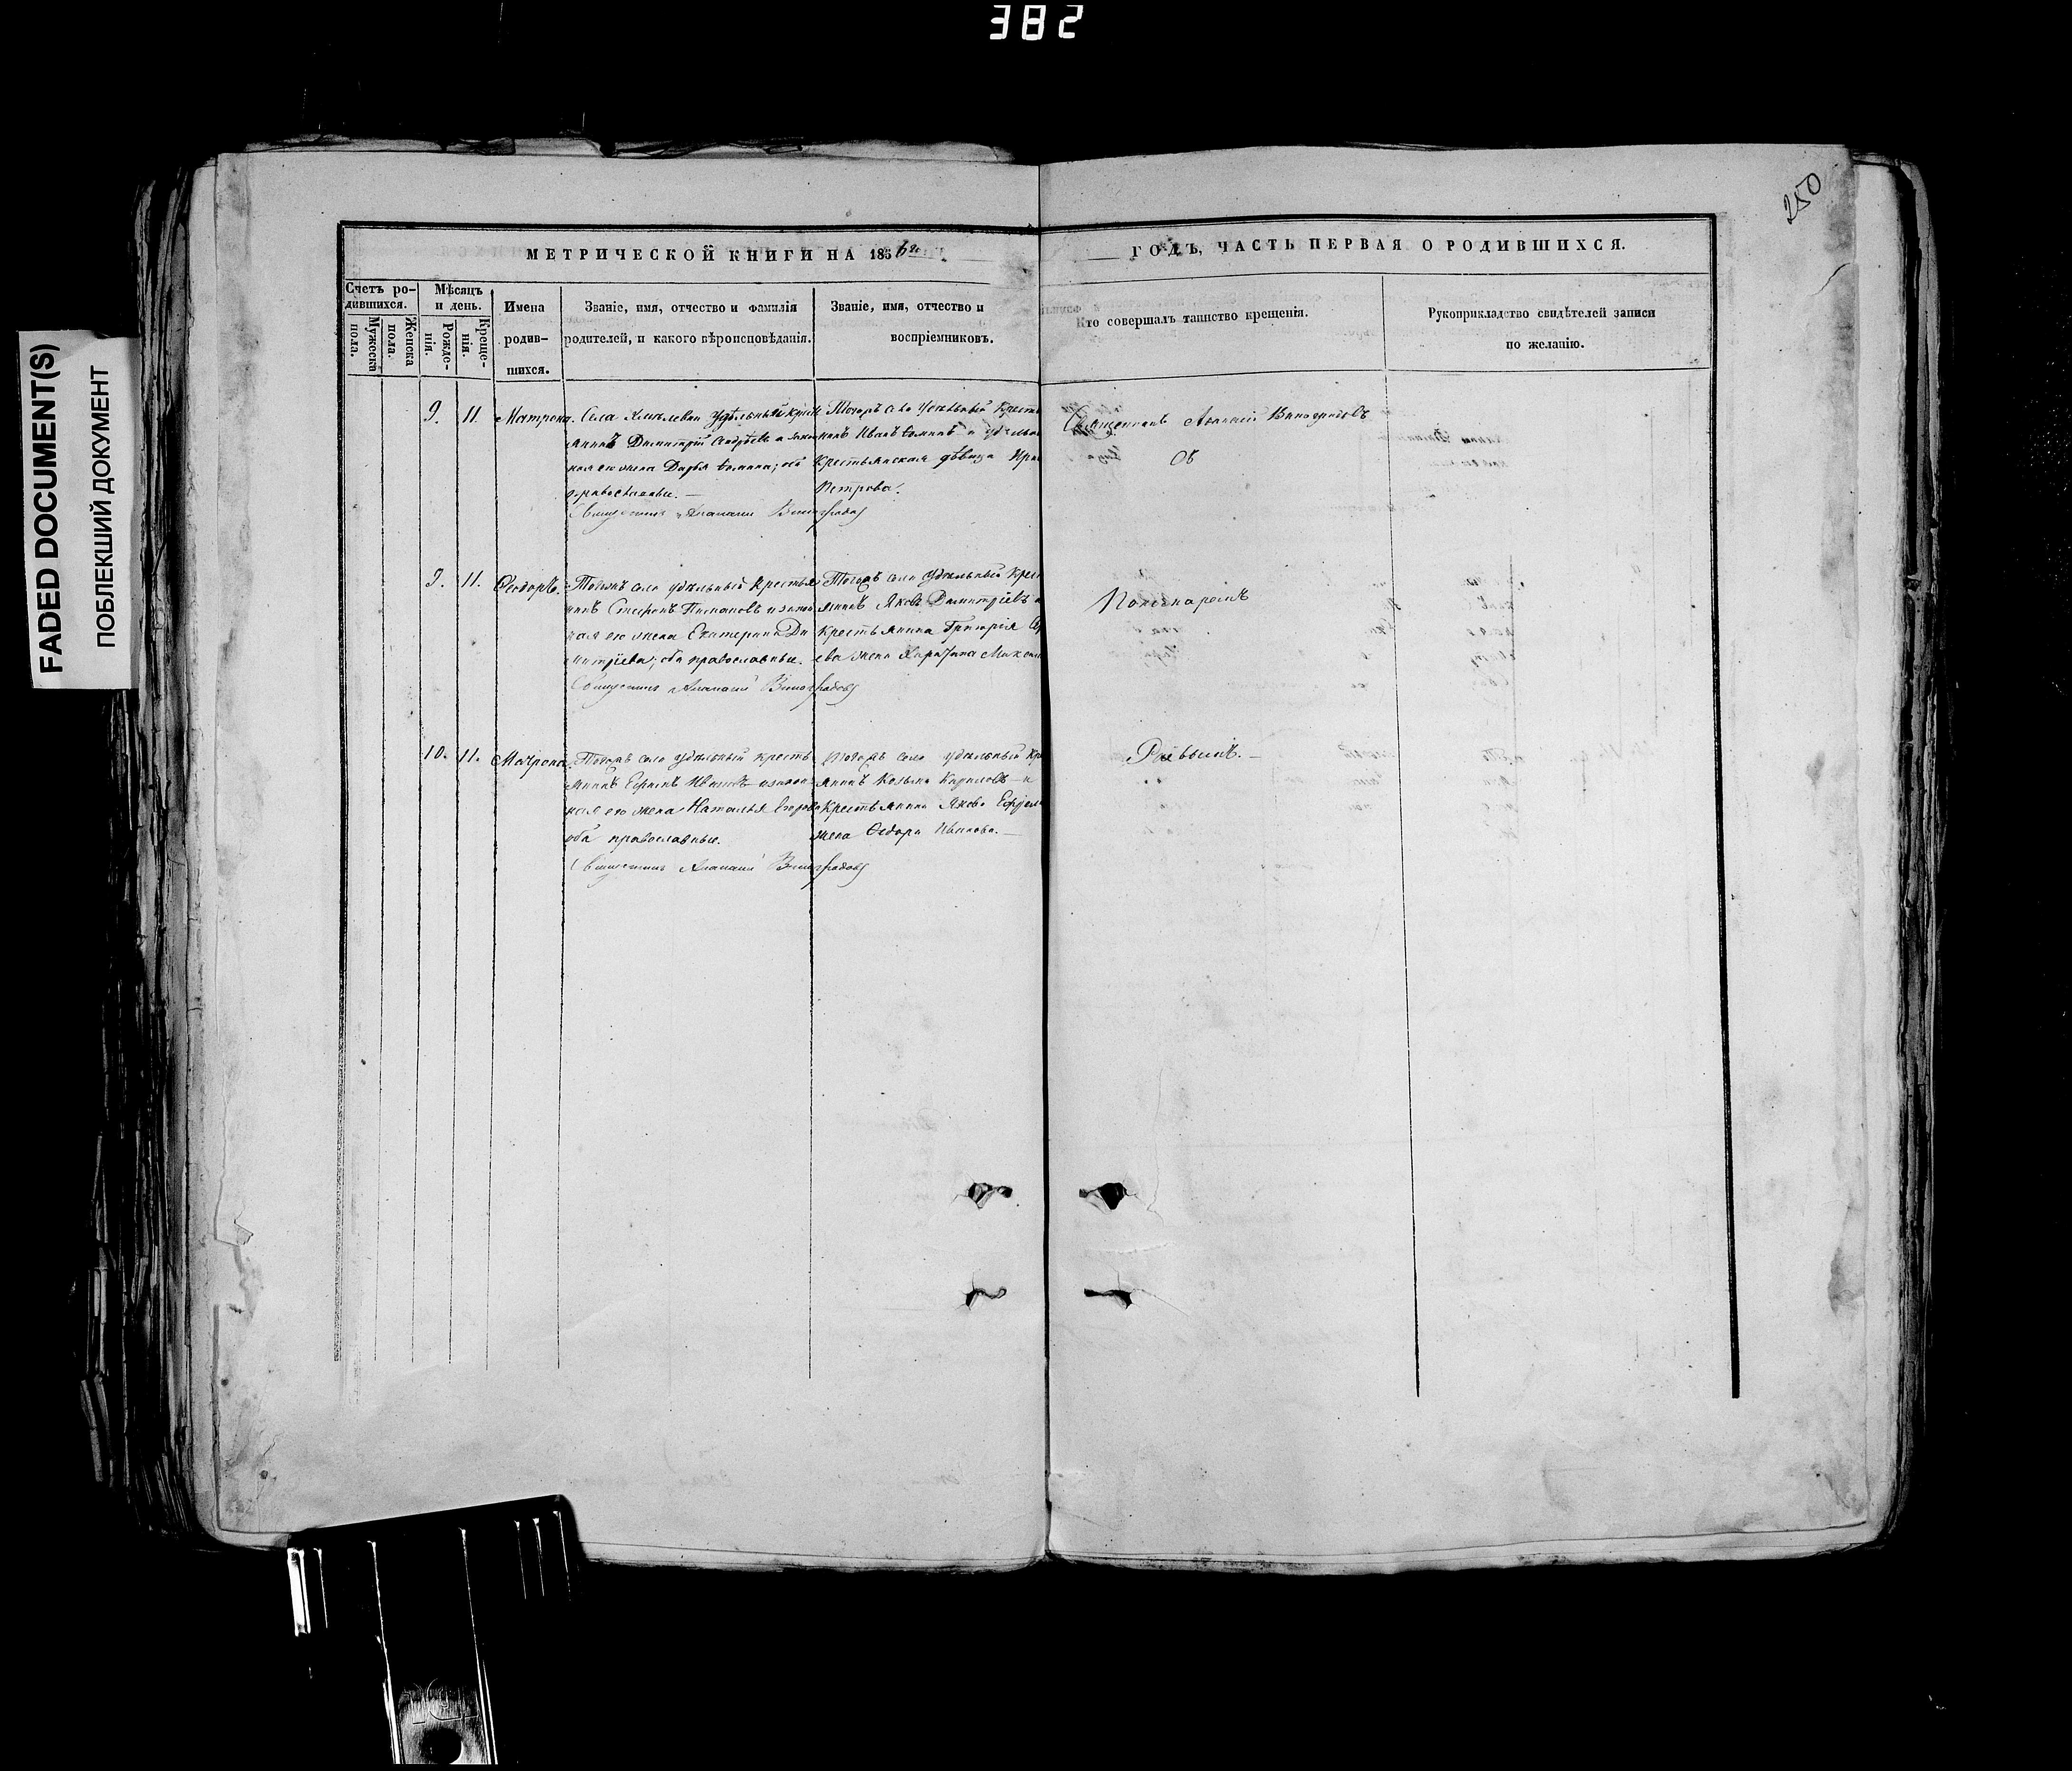 382
250
FADED DOCUMENT(S)
ПОБЛЕКШИЙ ДОКУМЕНТ
МЕТРИЧЕСКОЙ КНИГИ НА 1856 го
ГОДЪ, ЧАСТЬ ПЕРВАЯ О РОДИВШИХСЯ.
Счетъ ро-
дившихся.
Мужеска пола.
Женска пола.
Мѣсяцъ
и день.
Рожде-
нія.
Креще-
нія.
Имена
родив-
шихся.
Званіе, имя, отчество и Фамилія
родителей, и какого вѣроисповѣданія.
Званіе, имя, отчество и
воспріемниковъ.
Кто совершалъ таинство крещенія.
Рукоприкладство свидѣтелей записи
по желанію.
9. 11. Матрона.
Села удѣльный крест
янинъ Димитрій и закон
ная его жена Дарья Ѳомина; оба
православные. —
Священникъ Аѳанасій Виноградовъ
Тогожъ села удѣльный крест
нинъ Иванъ Ѳоминъ и удѣльна
крестьянская дѣвица Ири
Петрова.
Священникъ Аѳанасій Виноградовъ
Съ
9. 11. Ѳеодоръ.
Тогожъ села удѣльный крестья
нинъ Стефанъ и закон
ная его жена Екатерина Ди
митріева; оба православные.
Священникъ Аѳанасій Виноградовъ
Тогожъ села удѣльный крес
янинъ Яковъ Димитріевъ и
крестьянина Григорія
ева жена Харитина Макси
Пономаремъ
10. 11. Матрона.
Тогожъ села удѣльный кресть
янинъ Ефимъ Ивановъ и закон
ная его жена Наталья Егорова
оба православные.
Священникъ Аѳанасій Виноградовъ
Тогожъ села удѣльный кр
янинъ Козьма Кириловъ — и
крестьянина Якова
жена Ѳедора Иванова. —